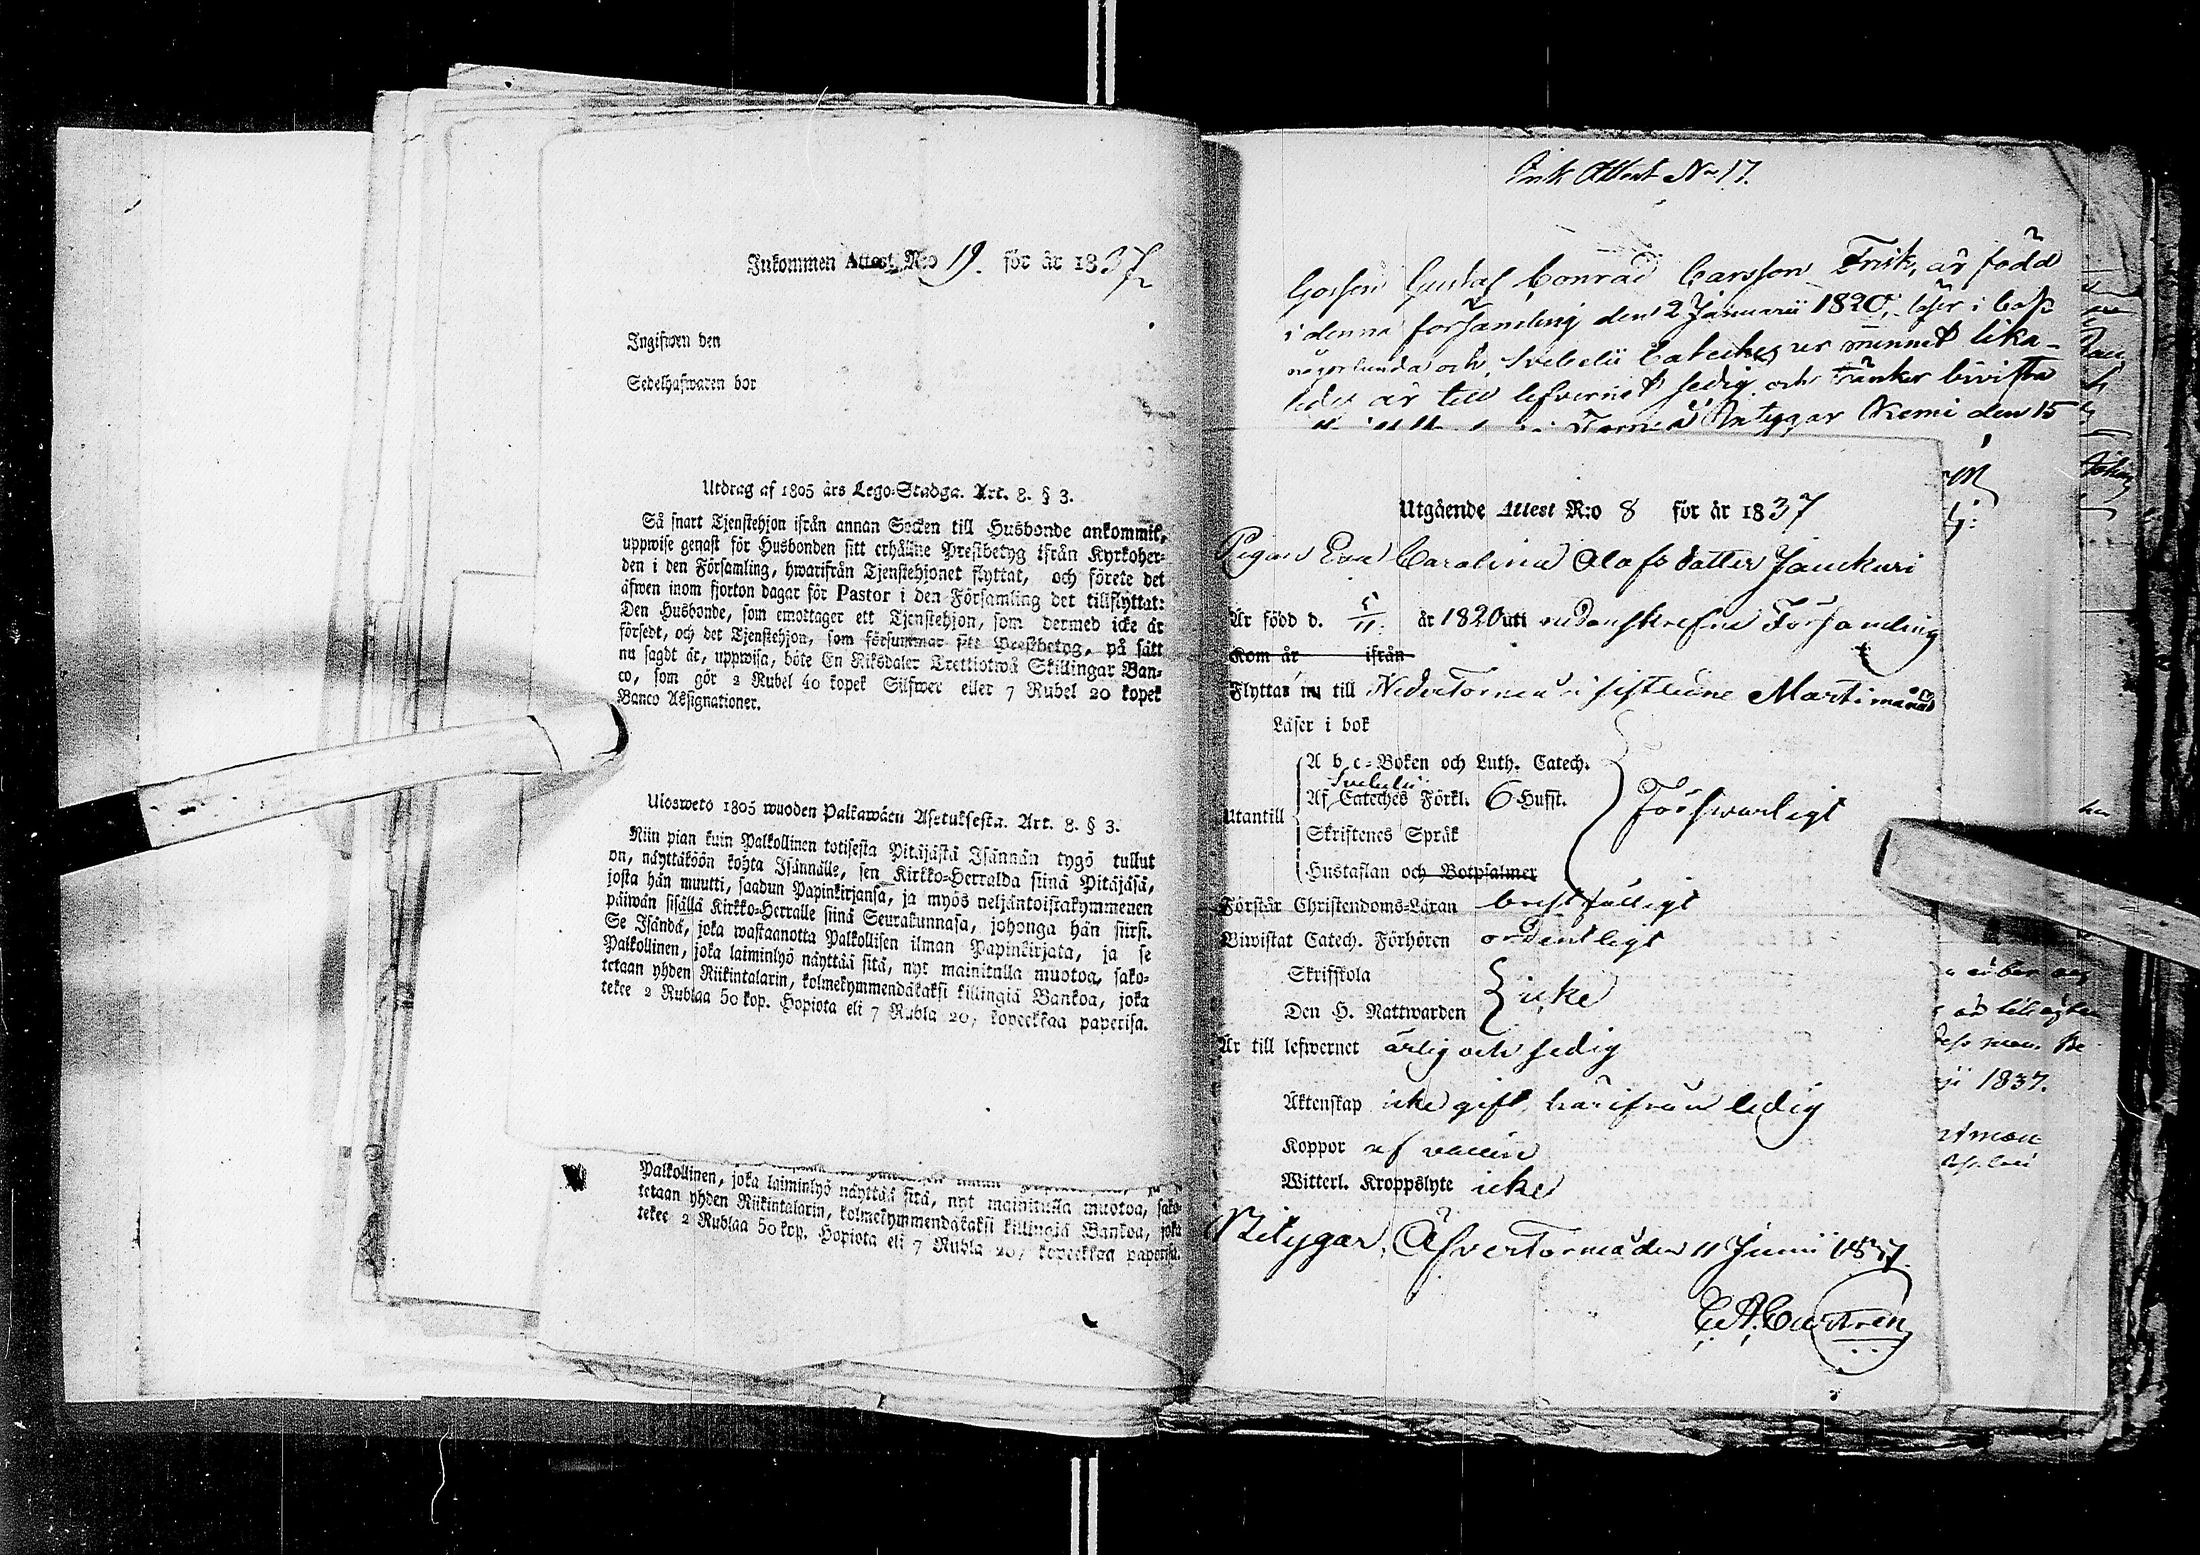 Inkommen Attest N:o 19. för år 1837
Ingifwen den
Sedelhafwaren bor
Utdrag af 1805 års Lego-Stadga. Art. 8. § 3.
Så snart Tjenstehjon ifrån annan Socken till Husbonde ankommit,
uppwise genast för Husbonden sitt erhållne Prestbetyg ifrån Kyrkoher-
den i den Församling, hwarifrån Tjenstehjonet flyttat, och förete det
äfwen inom fjorton dagar för Pastor i den Församling det tillflyttat:
Den Husbonde, som emottager ett Tjenstehjon, som dermed icke är
försedt, och det Tjenstehjon, som försummar sitt Prestbetyg, på sätt
nu sagdt är, uppwisa, böte En Riksdaler Trettiotwå Skillingar Ban-
co, som gör 2 Rubel 40 kopek Silfwer eller 7 Rubel 20 kopek
Banco Assignationer.
Uloswetö 1805 wuoden Palkawäen Asetuksesta. Art. 8. § 3.
Niin pian kuin Palkollinen toisesta Pitäjästä Isännän tygö tullut
on, näyttäköön kohta Isännälle, sen Kirkko-Herralda siinä Pitäjäsä,
josta hän muutti, saadun Papinkirjansa, ja myös neljäntoistakymmenen
päiwän sisällä Kirkko-Herralle siinä Seurakunnasa, johonga hän siirsi.
Se Isändä, joka wastaanotta Palkollisen ilman Papinkirjata, ja se
Palkollinen, joka laiminlyö näyttää sitä, nyt mainitulla muotoa, sako-
tetaan yhden Riikintalarin, kolmekymmendäkaksi killingiä Bankoa, joka
tekee 2 Rublaa 50 kop. Hopiota eli 7 Rubla 20, kopeekkaa paperisa.
Palkollinen, joka laiminlyö näyttää sitä, nyt mainitulla muotoa, sako-
tetaan yhden Riikintalarin, kolmekymmendäkaksi killingiä Bankoa, joka
tekee 2 Rublaa 50 kop. Hopiota eli 7 Rubla 20, kopeekkaa paperisa.
Frisk Attest No 17.
Gossen Gustaf Conrad Carsson Frisk, är född
i denna församling den 2 Januarii 1820, läser i bok
någorlunda och Svebelii Cateches ur minnet lika-
ledes är till lefvernet sedig och tänker bivista
Torneå Betygar Kemi den 15
Utgående Attest N:o 8 för år 1837
Pigan Eva Carolina Olofsdotter Jauckuri
Är född d. 5/11. år 1820 uti nedanskrefne Församling
Kom år ifrån
Flyttar nu till NederTorneå sistleune Martimaa
Läser i bok
Utantill
A b c-Boken och Luth. Catech.
Svebelii
Af Cateches Förkl. 6 Hufst.
Skriftenes Språk
Hustaflan och Botpsalmer
Försvarligt
Förstår Christendoms-Läran bristfälligt
Biwistat Catech. Förhören ordentligt
Skriftskola
Den H. Nattwarden
icke
Är till lefwernet ärlig och sedig
Äktenskap icke gift, härifrån ledig
Koppor af vaccin
Witterl. Kroppslyte icke
Betygar, ÖfverTorneå den 11 Junii 1837.
1837.